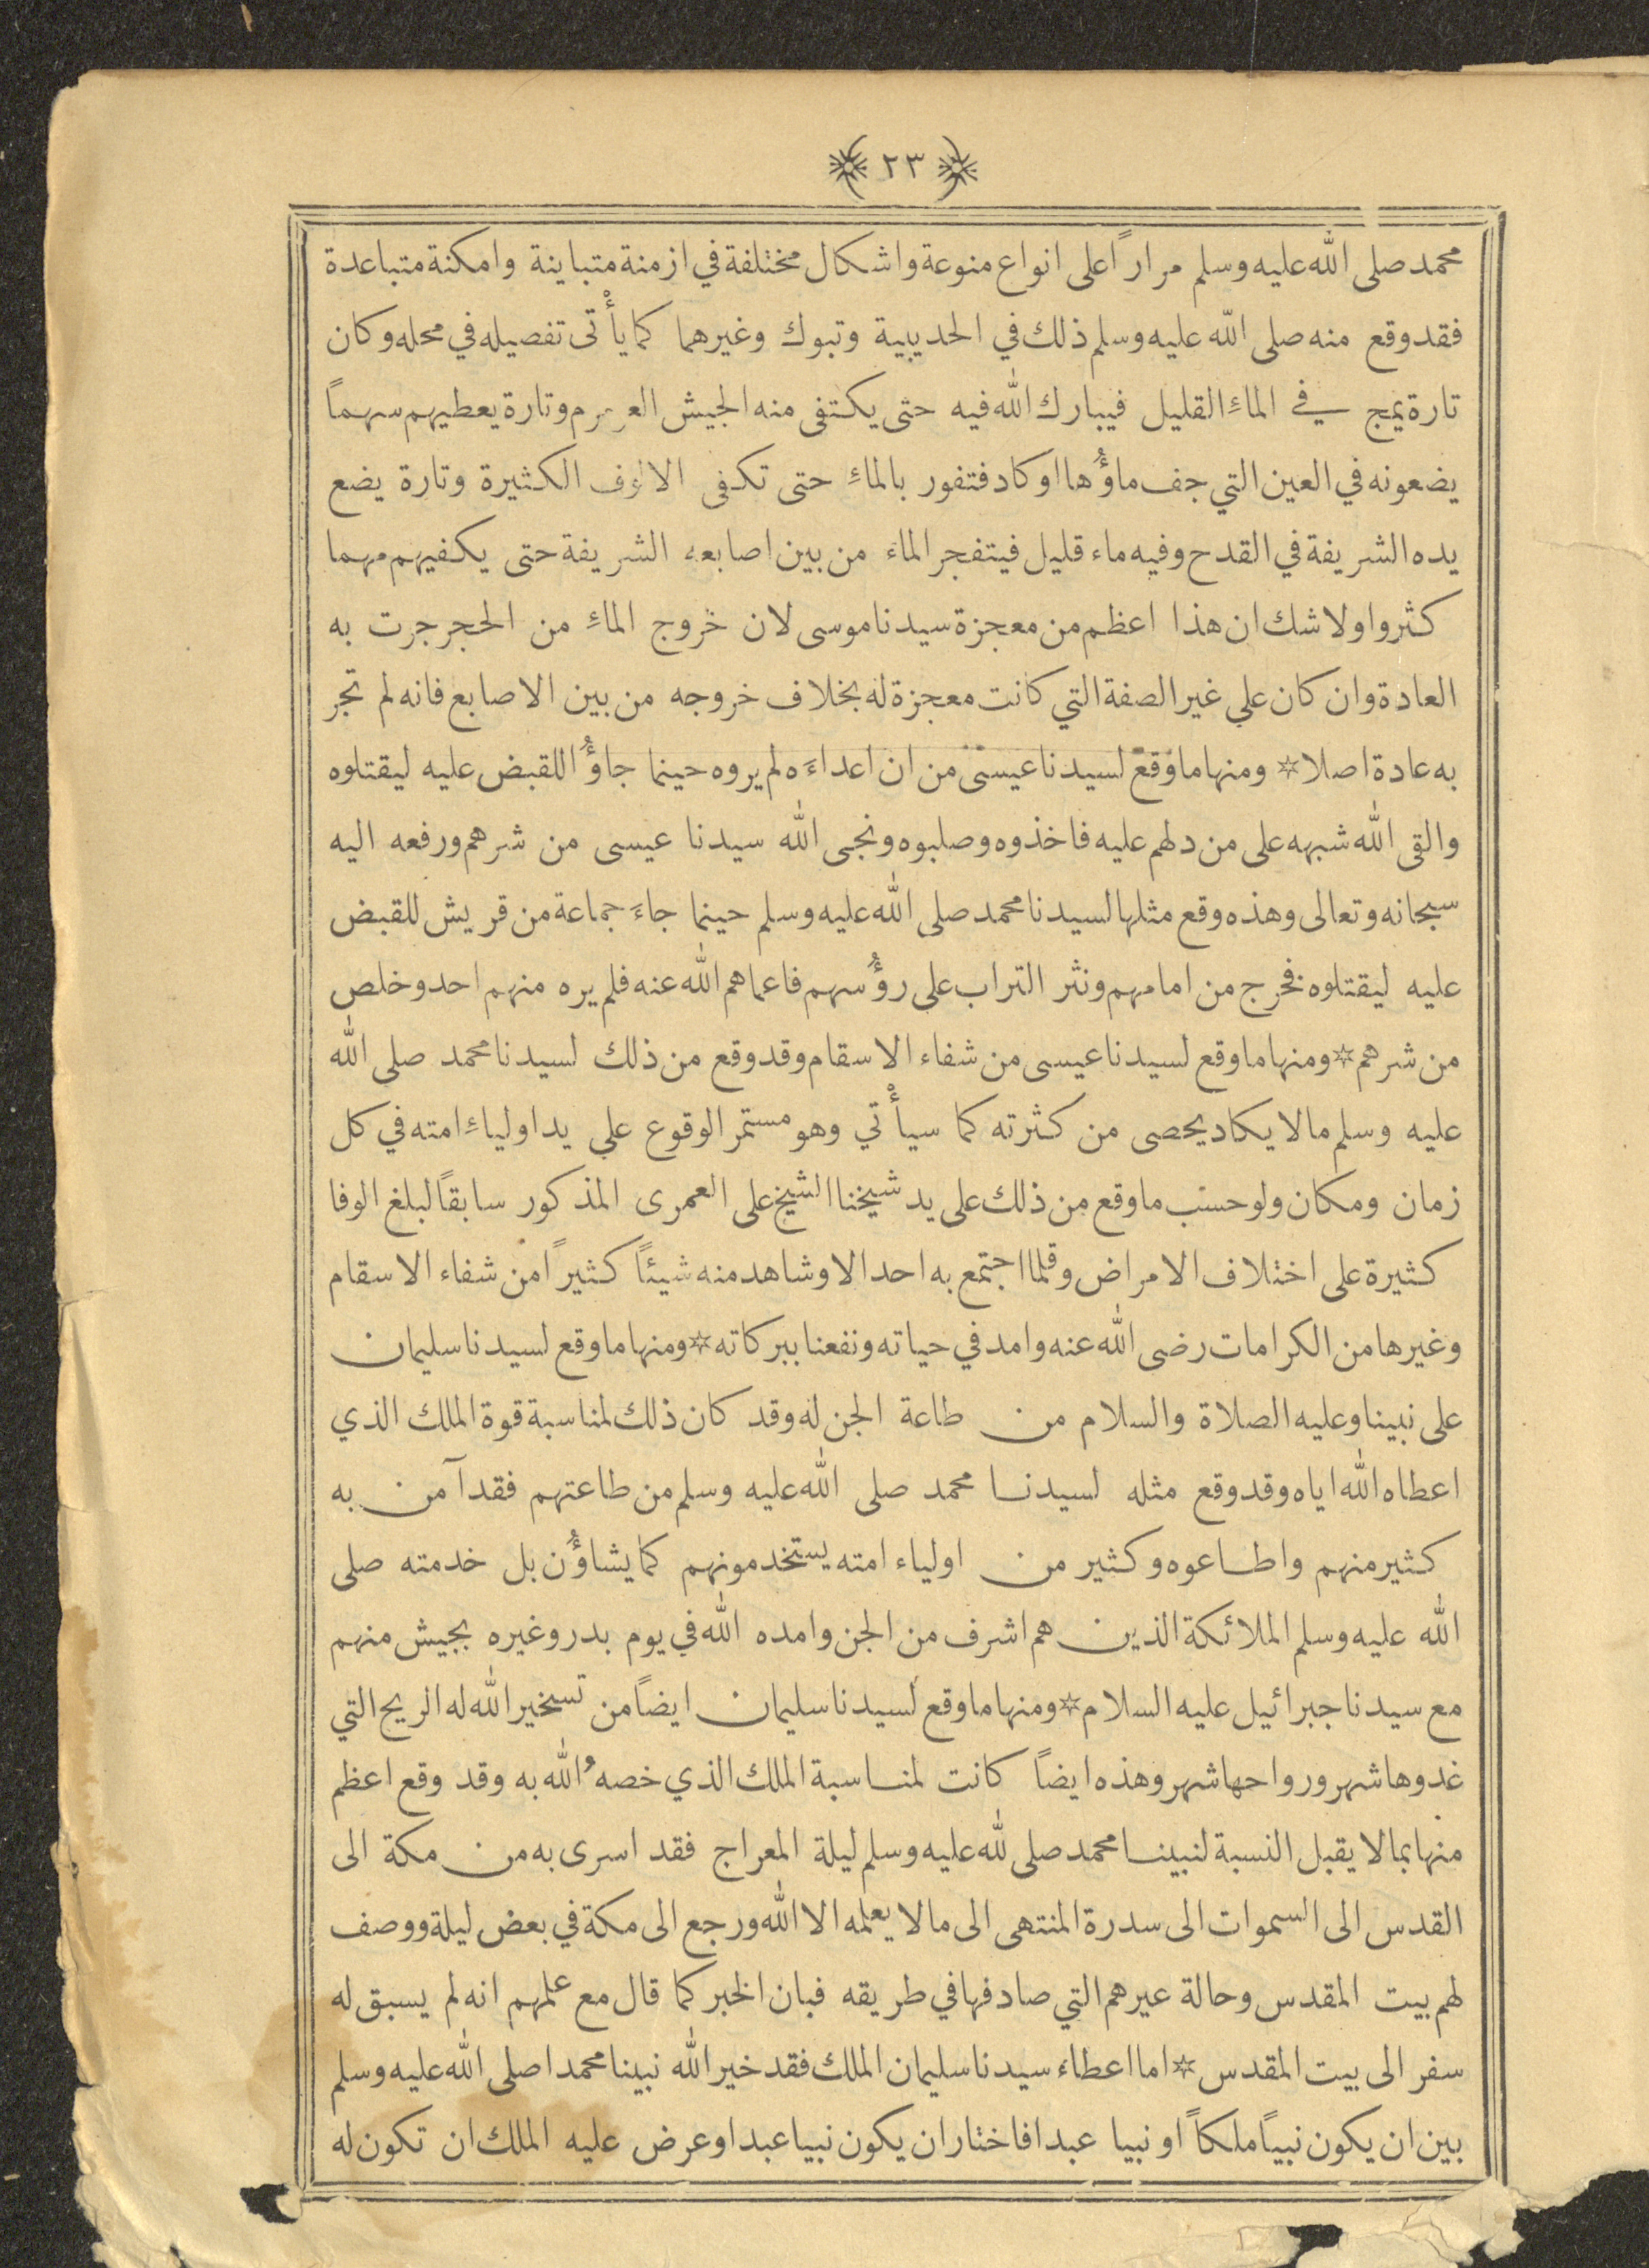 ٢٣
محمد صلى الله عليه وسلم مراراً على انواع منوعة واشكال مختلفة في ازمنة متباينة وامكنة متباعدة
فقد وقع منه صلى الله عليه وسلم ذلك في الحديبية وتبوك وغيرهما كما يأْتى تفصيله في محله وكان
تارة يمج في الماءِ القليل فيبارك الله فيه حتى يكتفى منه الجيش العرمرم وتارة يعطيهم سهماً
يضعونه في العين التي جف ماؤُها او كاد فتفور بالماءِ حتى تكفى الالوف الكثيرة وتارة يضع
يده الشريفة في القدح وفيه ماء قليل فيتفجر الماء من بين اصابعه الشريفة حتى يكفيهم مهما
كثروا ولا شك ان هذا اعظم من معجزة سيدنا موسى لان خروج الماءِ من الحجر جرت به
العادة وان كان علي غير الصفة التي كانت معجزة له بخلاف خروجه من بين الاصابع فانه لم تجر
به عادة اصلا * ومنها ما وقع لسيدنا عيسى من ان اعداءَه لم يروه حينما جاؤُا للقبض عليه ليقتلوه
والقى الله شبهه على من دلهم عليه فاخذوه وصلبوه ونجى الله سيدنا عيسى من شرهم ورفعه اليه
سبحانه وتعالى وهذه وقع مثلها لسيدنا محمد صلى الله عليه وسلم حينما جاءَ جماعة من قريش للقبض
عليه ليقتلوه فخرج من امامهم ونثر التراب على رؤُسهم فاعماهم الله عنه فلم يره منهم احد وخلص
من شرهم * ومنها ما وقع لسيدنا عيسى من شفاء الاسقام وقد وقع من ذلك لسيدنا محمد صلى الله
عليه وسلم مالا يكاد يحصى من كثرته كما سيأْتي وهو مستمر الوقوع علي يد اولياءِ امته في كل
زمان ومكان ولو حسب ما وقع من ذلك على يد شيخنا الشيخ على العمرى المذكور سابقاً لبلغ الوفا
كثيرة على اختلاف الامراض وقلما اجتمع به احد الا وشاهد منه شيئاً كثيراً من شفاء الاسقام
وغيرها من الكرامات رضى الله عنه وامد في حياته ونفعنا ببركاته * ومنها ما وقع لسيدنا سليمان
على نبينا وعليه الصلاة والسلام من طاعة الجن له وقد كان ذلك لمناسبة قوة الملك الذي
اعطاه الله اياه وقد وقع مثله لسيدنا محمد صلى الله عليه وسلم من طاعتهم فقد آمن به
كثير منهم واطاعوه وكثير من اولياء امته يستخدمونهم كما يشاؤُن بل خدمته صلى
الله عليه وسلم الملائكة الذين هم اشرف من الجن وامده الله في يوم بدر وغيره بجيش منهم
مع سيدنا جبرائيل عليه السلام * ومنها ما وقع لسيدنا سليمان ايضاً من تسخير الله له الريح التي
غدوها شهر ورواحها شهر وهذه ايضاً كانت لمناسبة الملك الذي خصهُ الله به وقد وقع اعظم
منها بما لا يقبل النسبة لنبينا محمد صلى لله عليه وسلم ليلة المعراج فقد اسرى به من مكة الى
القدس الى السموات الى سدرة المنتهى الى مالا يعلمه الا الله ورجع الى مكة في بعض ليلة ووصف
لهم بيت المقدس وحالة عيرهم التي صادفها في طريقه فبان الخبر كما قال مع علمهم انه لم يسبق له
سفر الى بيت المقدس * اما اعطاء سيدنا سليمان الملك فقد خير الله نبينا محمدا صلى الله عليه وسلم
بين ان يكون نبياً ملكاً او نبيا عبدا فاختار ان يكون نبيا عبدا وعرض عليه الملك ان تكون له